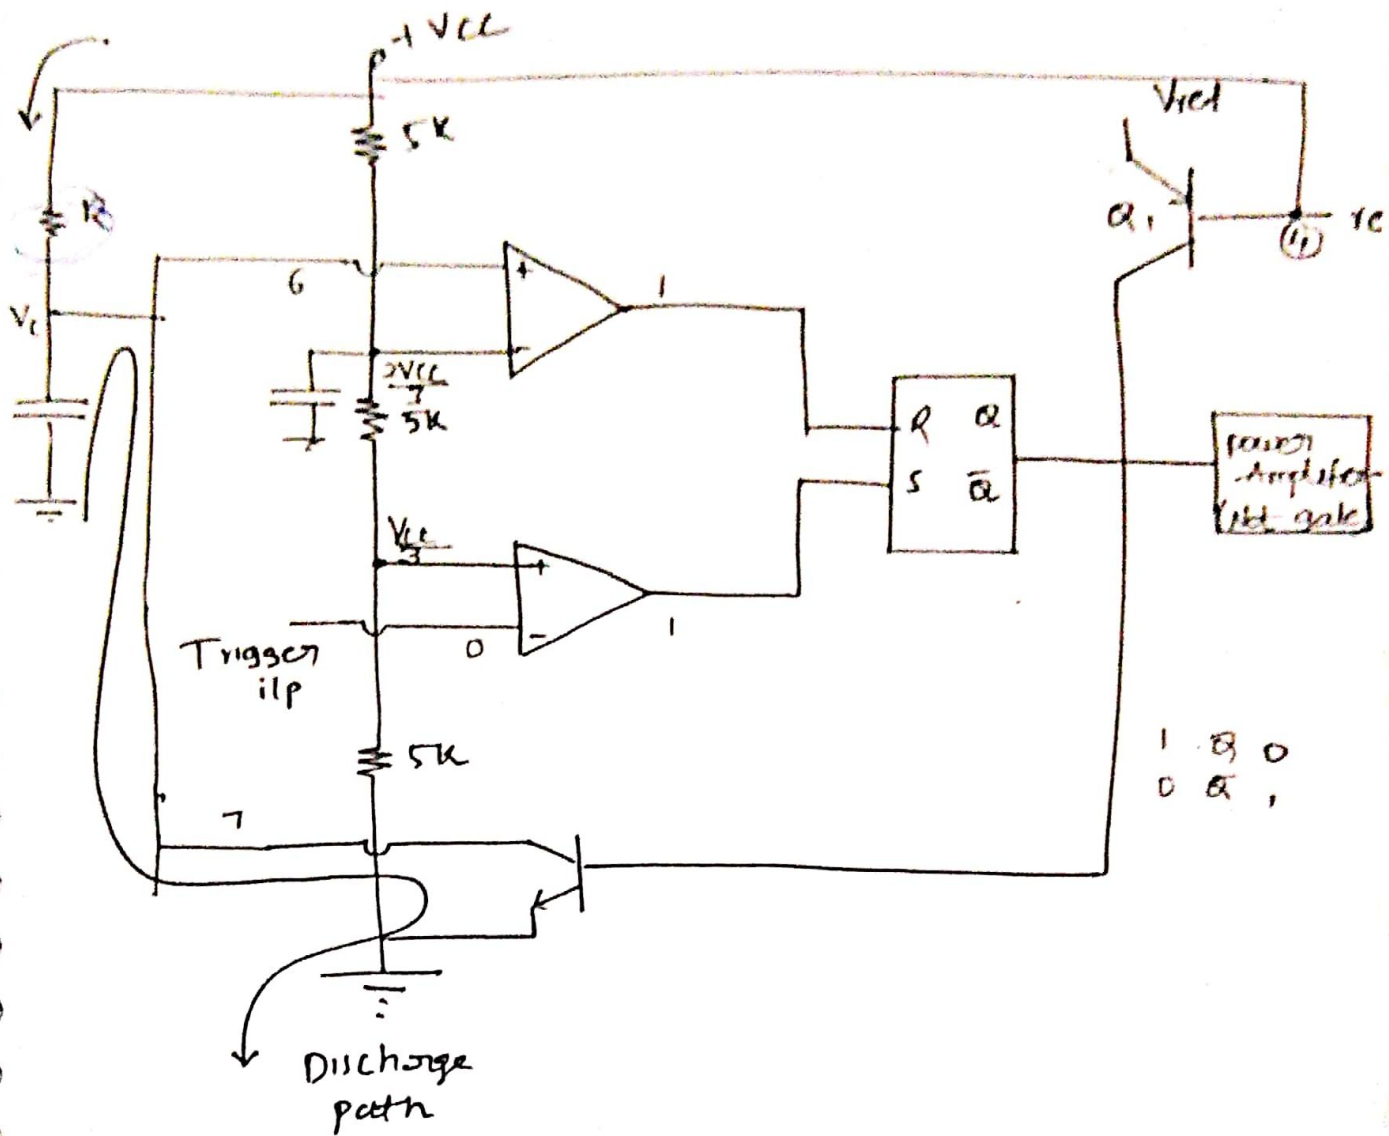 + VCC
5K
Vref
R
Q1
(4)
6
+
1
Vc
-
2VCC/3
5K
R Q
S Q̅
power
Amplifier
Not gate
VCC/3
+
Trigger
i/p
0
-
1
5K
1 Q 0
0 Q̅ 1
7
Discharge
path